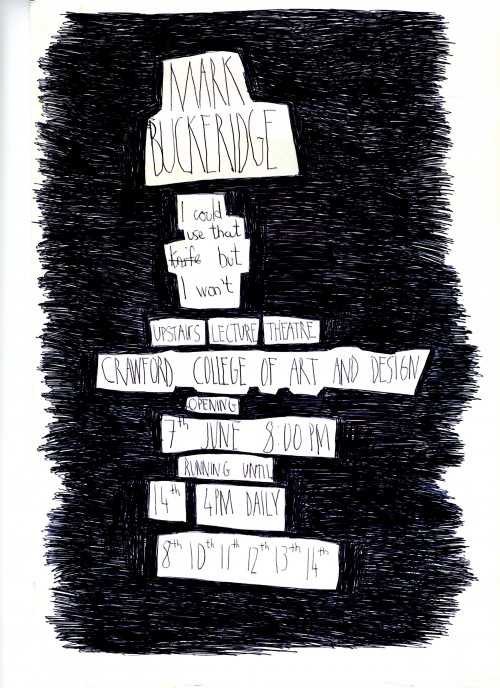 MARK
BUCKERIDGE
I could
use that
knife but
I won't
UPSTAIRS LECTURE THEATRE
CRAWFORD COLLEGE OF ART AND DESIGN
OPENING
7th JUNE 8:00 PM
RUNNING UNTIL
14th 4PM DAILY
8th 10th 11th 12th 13th 14th